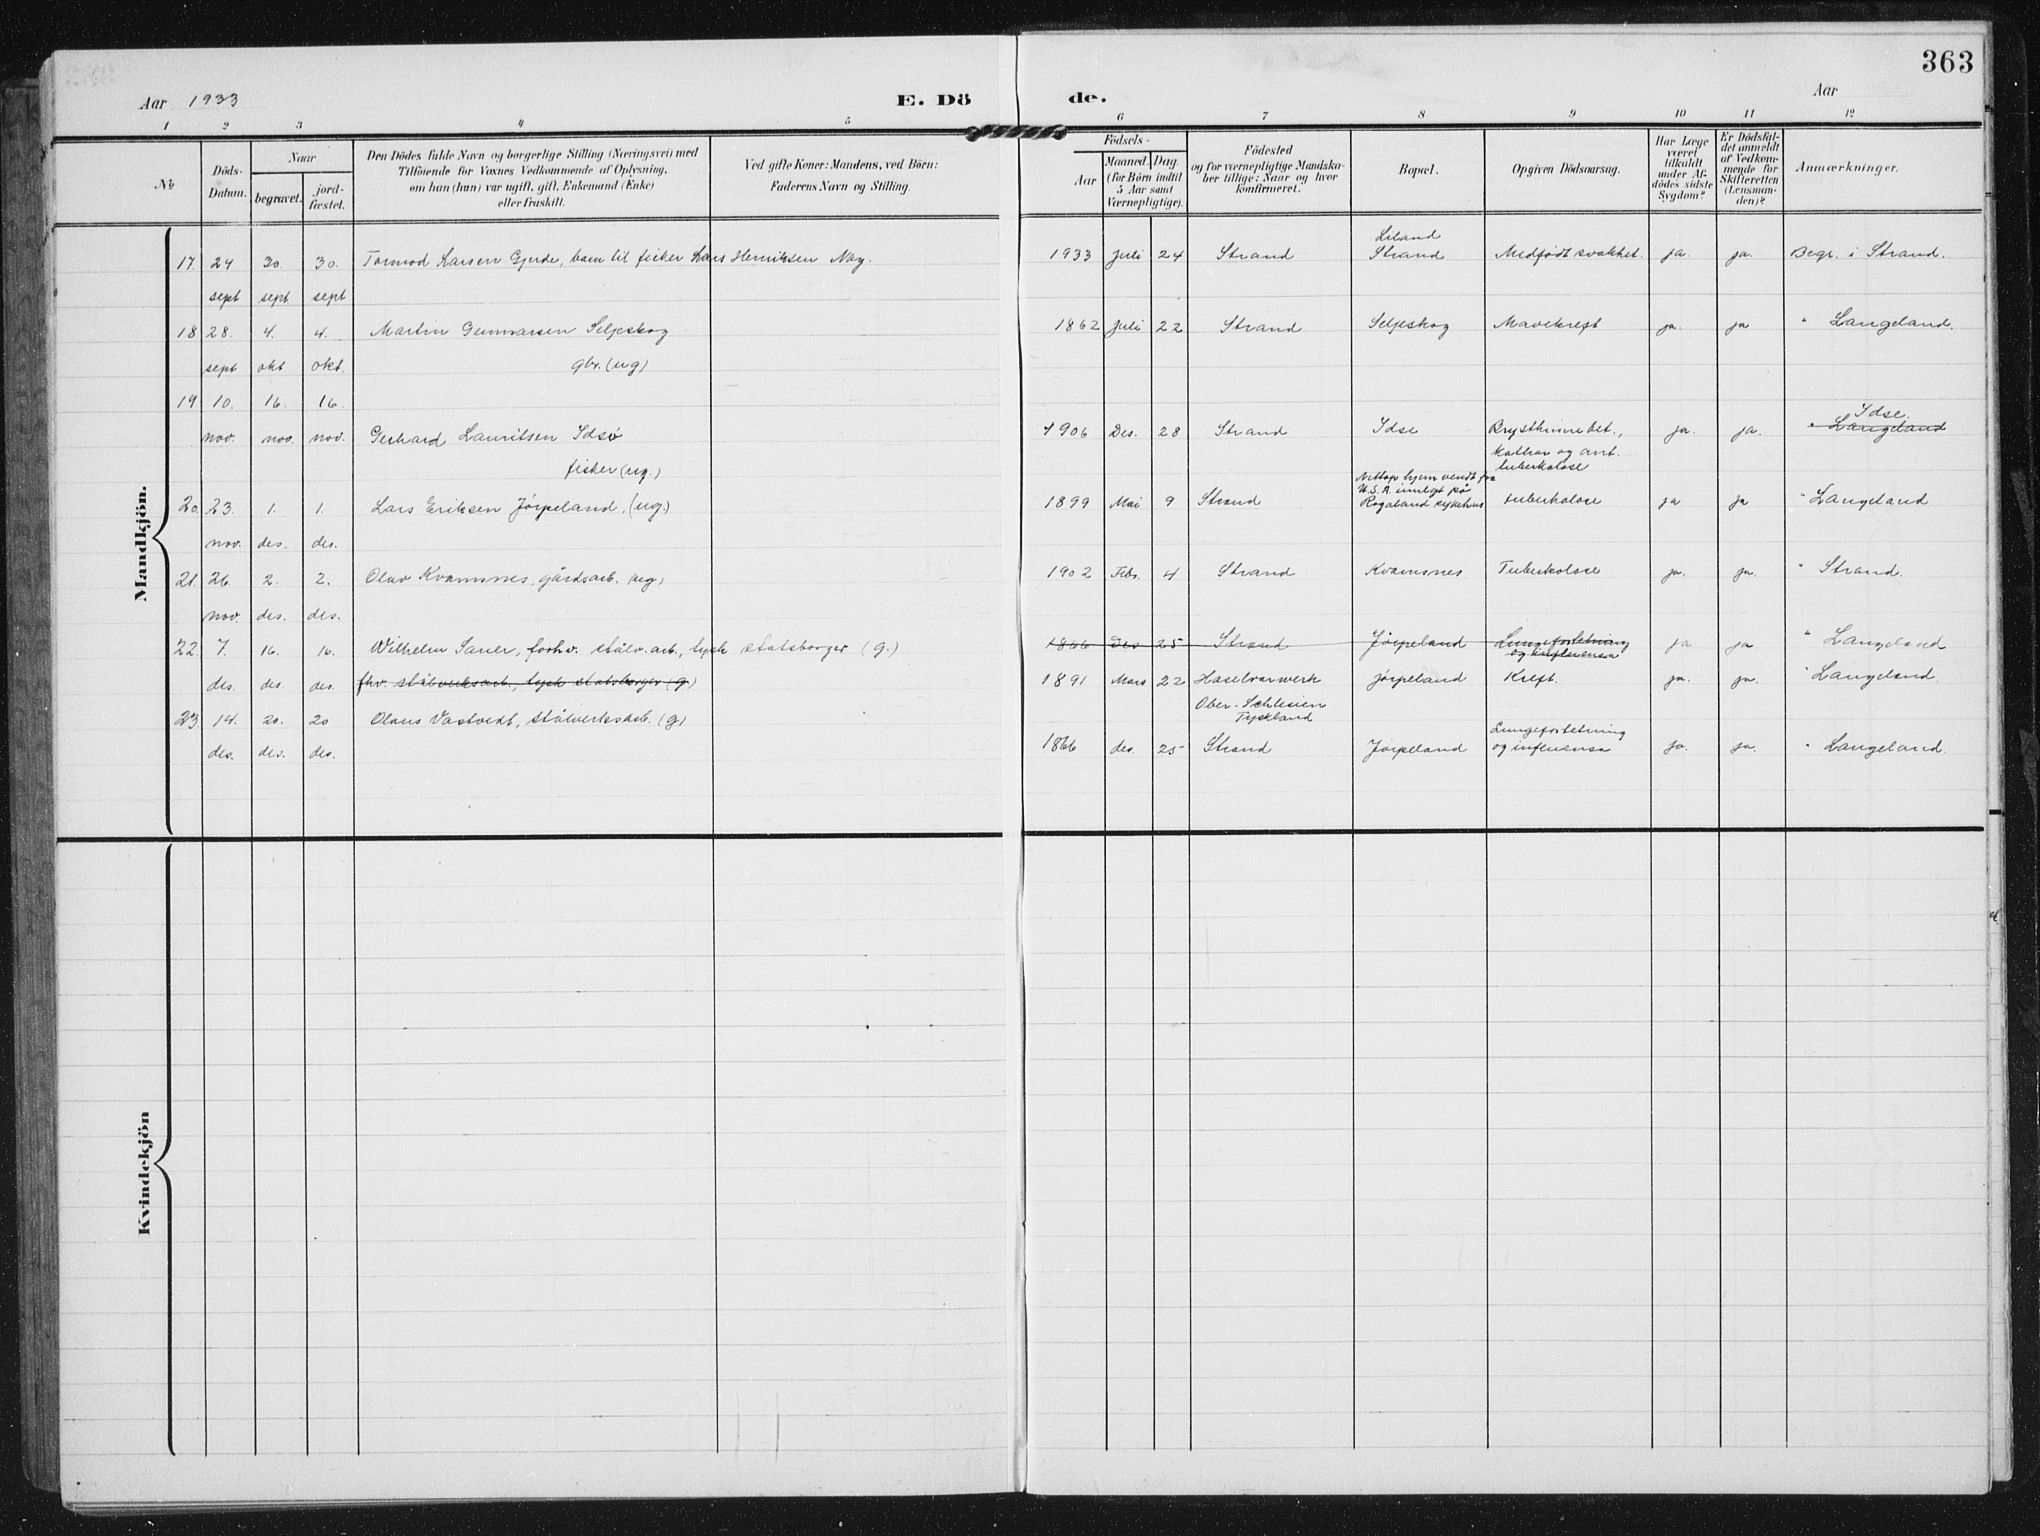 363
Aar 1933
E. Dö
de.
Aar
1 2 3 4 5 6 7 8 9 10 11 12
No
Döds-
Datum.
Naar
begravet.
jord-
fæstet.
Den Dödes fulde Navn og borgerlige Stilling (Næringsvei) med
Tilföiende for Voxnes Vedkommende af Oplysning,
om han (hun) var ugift, gift, Enkemand (Enke)
eller fraskilt.
Ved gifte Koner: Mandens, ved Börn:
Faderens Navn og Stilling.
Födsels-
Aar
Maaned. Dag.
(for Börn indtil
5 Aar samt
Værnepligtige).
Födested
og for værnepligtige Mandska-
ber tillige: Naar og hvor
konfirmeret.
Bopæl.
Opgiven Dödsaarsag.
Har Læge
været
tilkaldt
under Af-
dödes sidste
Sygdom?
Er Dödsfal-
det anmeldt
af Vedkom-
mende for
Skifteretten
(Lensman-
den)?
Anmærkninger.
Mandkjön.
Liland
17. 24 30. 30. Tormod Larsen Gjerde, barn til fisker Lars Henriksen Nag. 1933 Juli 24 Strand Strand Medfødt svakhet. ja. ja. Begr. i Strand.
sept sept sept
18 28. 4. 4. Martin Gunnarsen Seljeskog 1862 Juli 22 Strand Seljeskog Mavekreft ja. ja " Langeland.
sept okt okt. gbr. (ug)
19 10. 16. 16.
Idse.
nov. nov. nov. Gerhard Lauritsen Idsø 1906 Des. 28 Strand Idse Brysthinnebet., ja. ja. " Langeland
fisker (ug.) kathar og ant.
tuberkolose
Nettop hjemvendt fra
U.S.A. innlagt på
20. 23. 1. 1. Lars Eriksen Jørpeland. (ug.) 1899 Mai 9 Strand Rogaland sykehus tuberkolose ja ja " Langeland
nov. des. des.
21. 26. 2. 2. Olav Kvamsnes, gårdsarb. (ug) 1902 Febr. 4 Strand Kvamsnes Tuberkolose ja. ja. " Strand.
nov. des. des.
22. 7. 16. 16. Wilhelm Sauer, forhv. stålv. arb., tysk statsborger (g.) 1866 Des 25 Strand Jørpeland Lungefortetning ja ja " Langeland
og influensa
des. des. des. fhv. stålverksarb., tysk statsborger (g) 1891 Mars 22 Haselvorwerk Jørpeland Kreft. ja. ja. " Langeland.
Ober-Schlesien
Tyskland
23. 14. 20. 20 Olaus Vastveit, stålverksarb. (g)
Lungefortetning
des. des. des. 1866 des. 25 Strand Jørpeland og influensa ja. ja. " Langeland.
Kvindekjön